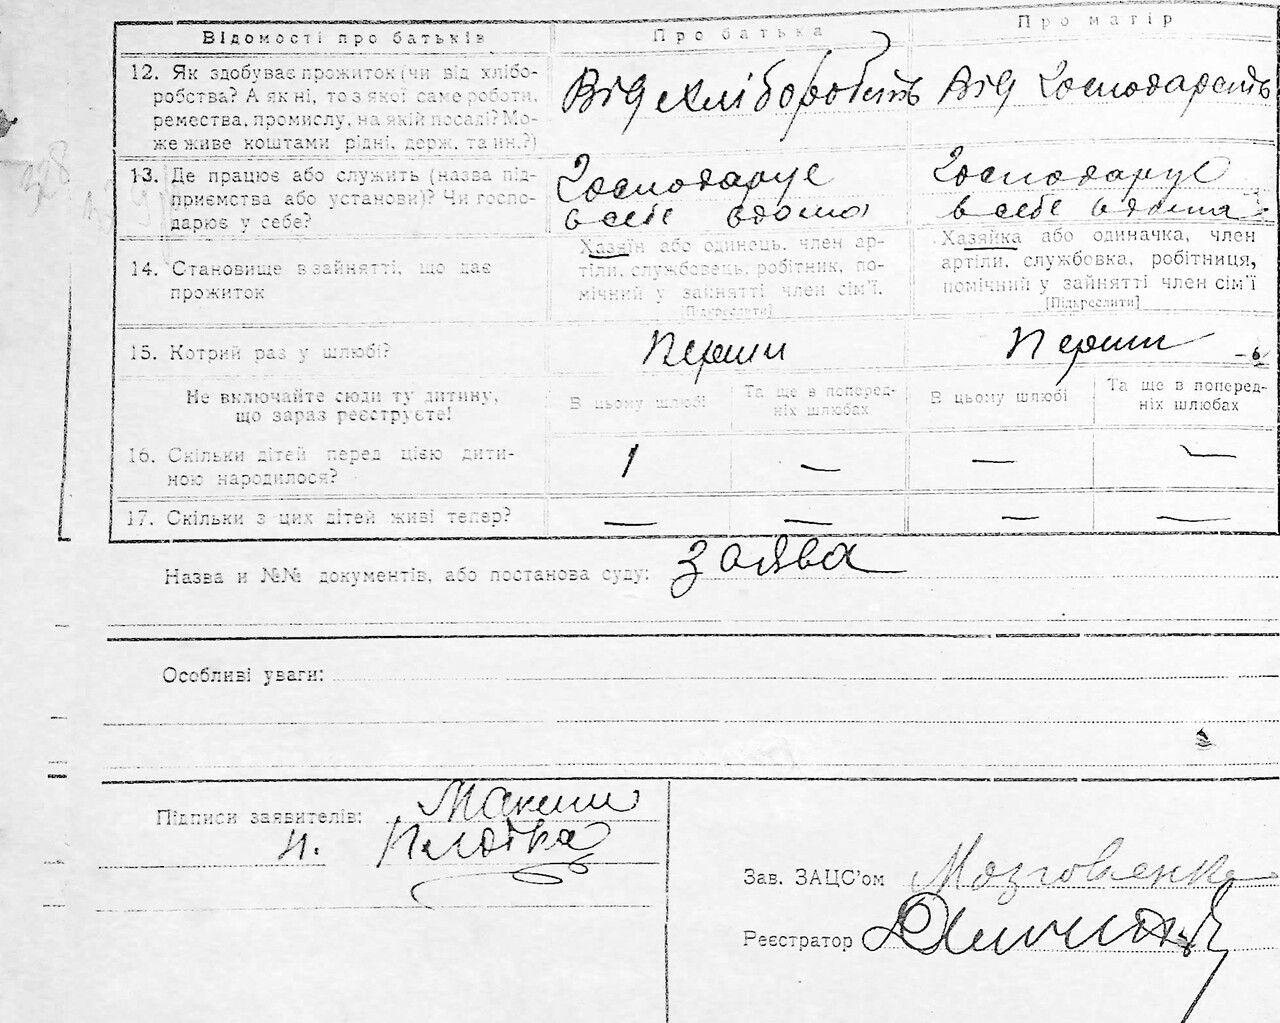 Відомості про батьків Про батька Про матір
12. Як здобуває прожиток (чи від хлібо-
робства? А як ні, то з якої саме роботи,
ремества, промислу, на якій посаді? Мо-
же живе коштами рідні, держ. та ин.?)
Від хліборобств
Від господарств
13. Де працює або служить (назва під-
приємства або установи)? Чи госпо-
дарює у себе?
Господарує
в себе вдома
Господарує
в себе вдома
14. Становище в зайнятті, що дає
прожиток
Хазяїн або одинець, член ар-
тіли, службовець, робітник, по-
мічний у зайнятті член сім'ї.
[Підкреслити]
Хазяйка або одиначка, член
артіли, службовка, робітниця,
помічний у зайнятті член сім'ї
[Підкреслити]
15. Котрий раз у шлюбі? Перший Перший
Не включайте сюди ту дитину,
що зараз реєструєте!
В цьому шлюбі
Та ще в поперед-
ніх шлюбах
В цьому шлюбі
Та ще в поперед-
ніх шлюбах
16. Скільки дітей перед цією дити-
ною народилося?
1 — — —
17. Скільки з цих дітей живі тепер? — — — —
Назва и №№ документів, або постанова суду: заява
Особливі уваги:
Підписи заявителів:
Зав. ЗАЦС'ом Мозговенко
Реєстратор